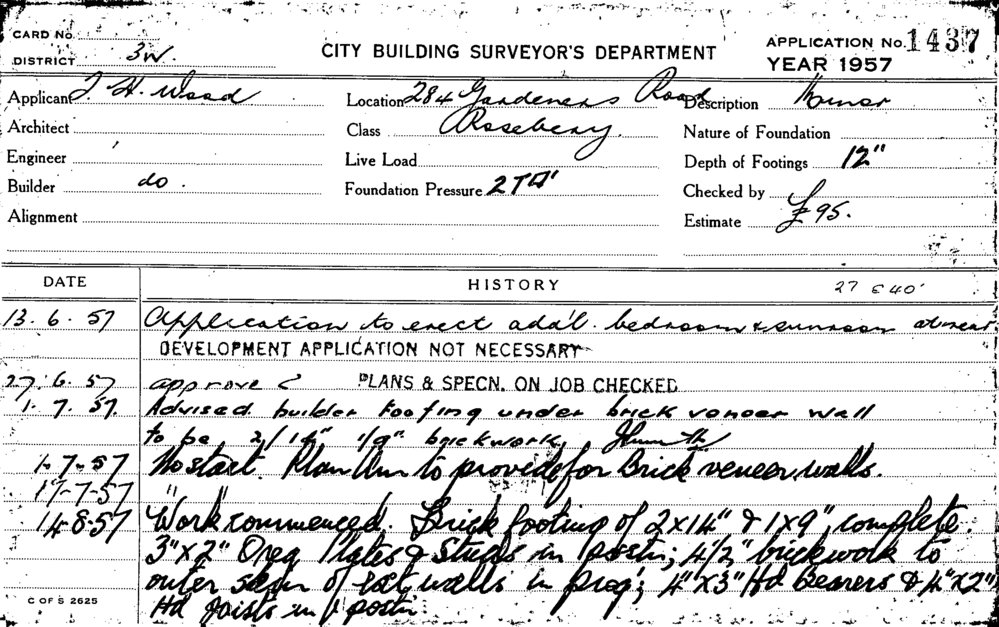 CARD No.
DISTRICT 3W.
CITY BUILDING SURVEYOR'S DEPARTMENT
APPLICATION No. 1437
YEAR 1957
Applicant J. H. Wood
Location 284 Gardeners Road
Description Minor
Architect
Class Rosebery.
Nature of Foundation
Engineer
Live Load
Depth of Footings 12"
Builder do.
Foundation Pressure 2T
Checked by
Alignment
Estimate £95.
DATE
HISTORY
27 6 40'
13. 6. 57 Application to erect add'l. bedroom & sunroom at rear
DEVELOPMENT APPLICATION NOT NECESSARY
27. 6. 57 approve PLANS & SPECN. ON JOB CHECKED
1. 7. 57. Advised builder footing under brick veneer wall
to be 2/14" 1/9" brickwork,
1-7-57 No start. Plan Am to provede for Brick veneer walls.
17-7-57 " "
14-8-57 Work commenced. Brick footing of 2x14" & 1x9", complete
3"x2" Oreg Plates & Studs in postn; 4½" brickwork to
outer skin of ext walls in prog; 4"x3" Hd bearers & 4"x2"
Hd joists in postn.
C OF S 2625